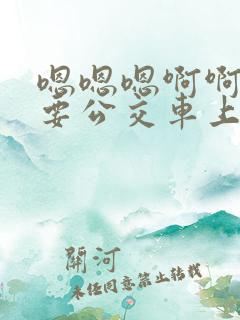 嗯嗯嗯啊啊
要公交車上
開河
未经同意禁止转载